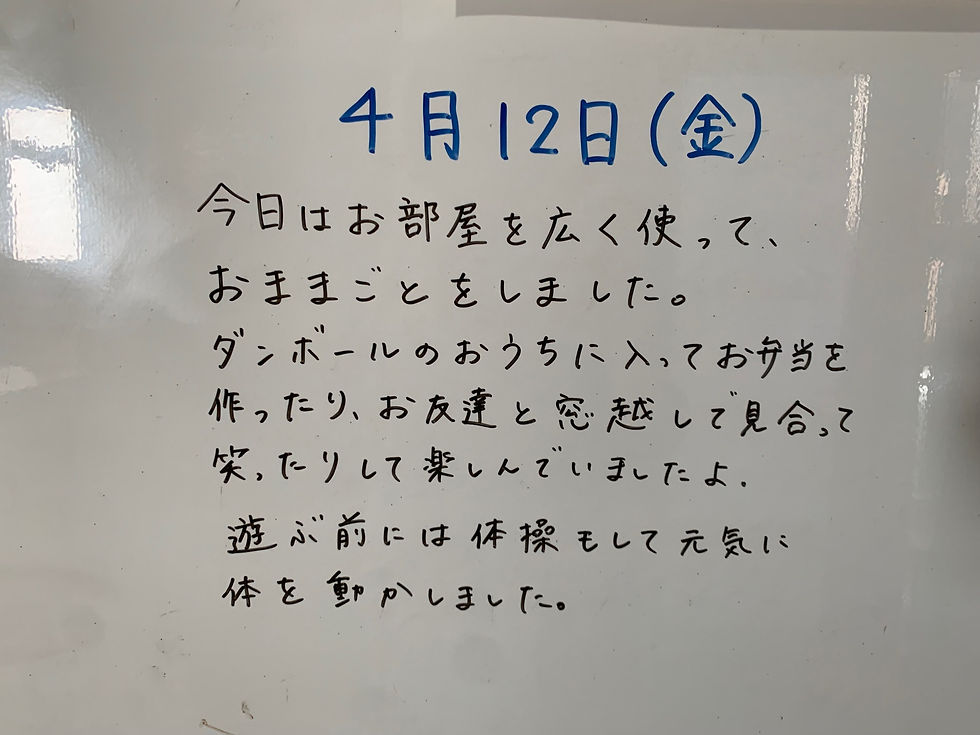 4月12日(金)
今日はお部屋を広く使って、
おままごとをしました。
ダンボールのおうちに入ってお弁当を
作ったり、お友達と窓越しで見合って
笑ったりして楽しんでいましたよ.
遊ぶ前には体操もして元気に
体を動かしました。